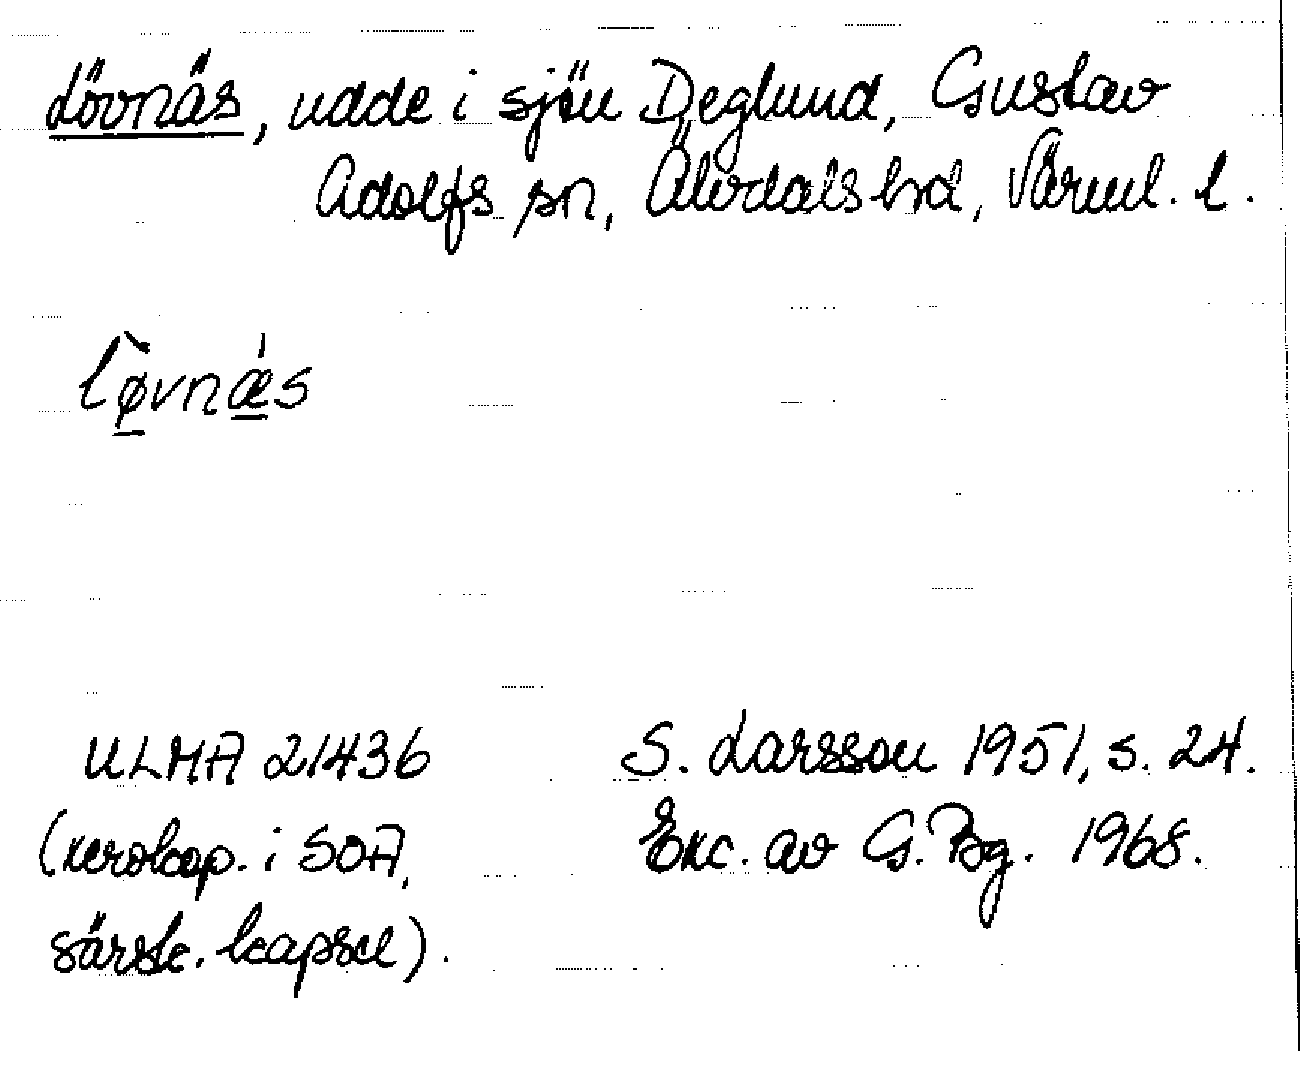 Lövnäs, udde i sjön Deglund, Gustav
Adolfs sn, Älvdals hd, Värml. l.
lø̀vnǽs
ULMA 21436
(xerokop. i SOA,
särsk. kapsel).
S. Larsson 1951, s. 24.
Exc. av G. Bg. 1968.